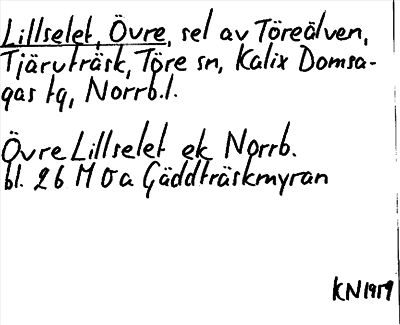 Lillselet, Övre, sel av Töreälven,
Tjäruträsk, Töre sn, Kalix Domsa-
gas tg, Norrb.l.
Övre Lillselet ek Norrb.
bl. 26 M 0 a Gäddträskmyran